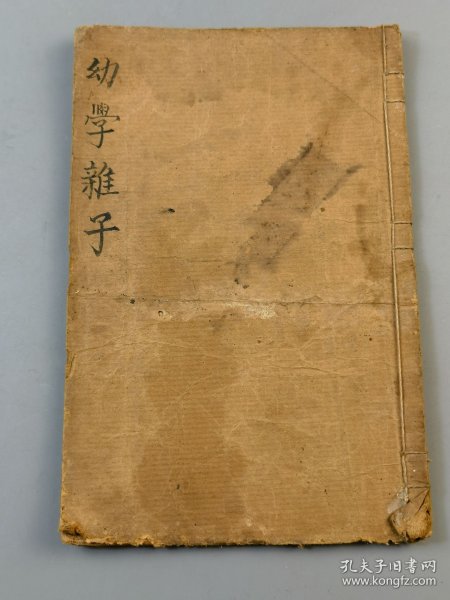 幼學雜子
孔夫子旧书网
www.kongfz.com